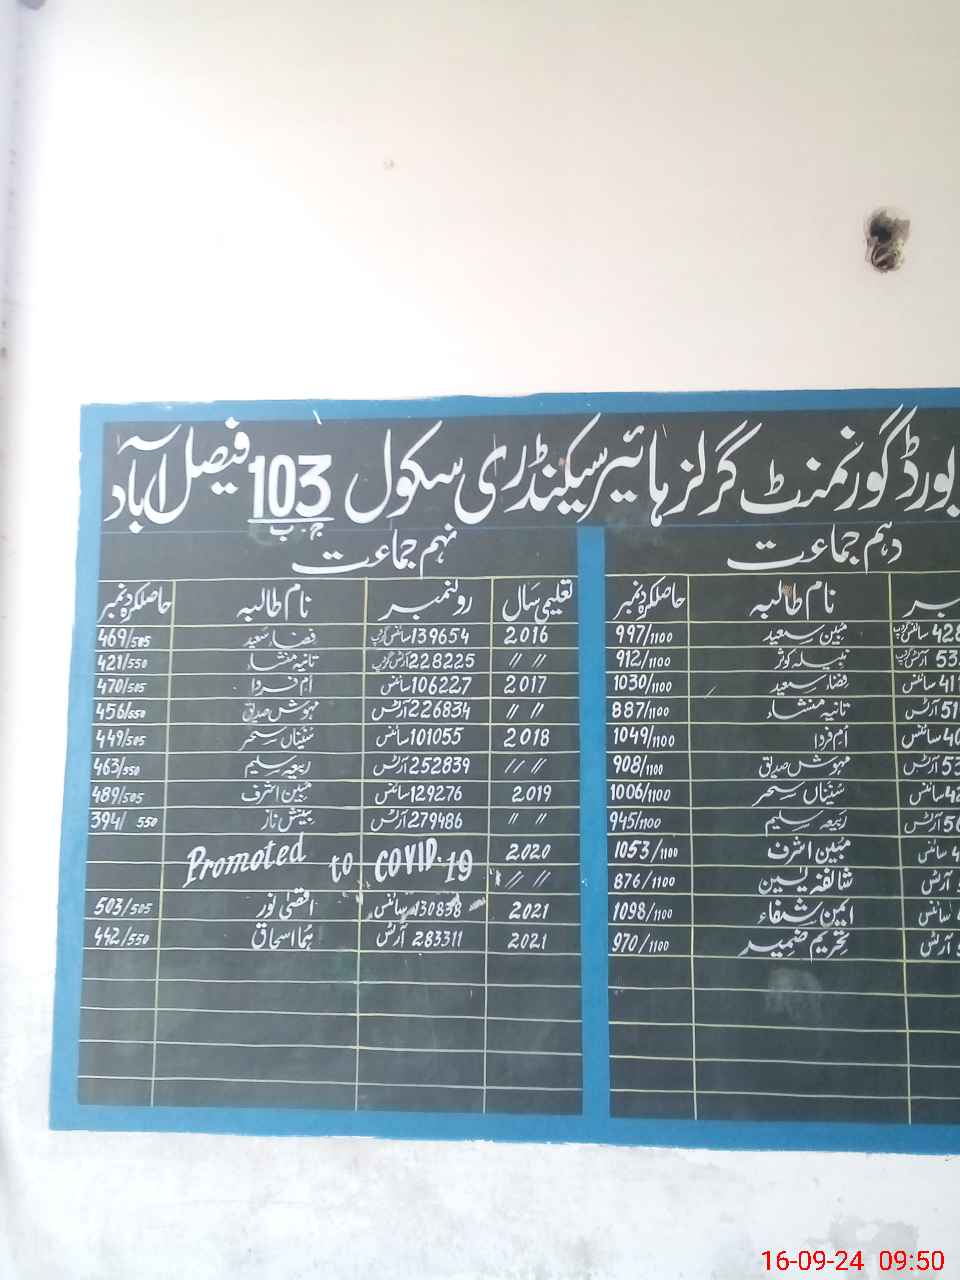 بورڈ گورنمنٹ گرلز ہائیر سیکنڈری سکول 103 ج.ب فیصل آباد
دہم جماعت
نام طالبہ حاصلکردہ نمبر
428 سائنس گروپ مبین سعید 997/1100
53 آرٹس گروپ نبیلہ کوثر 912/1100
41 سائنس فضاء سعید 1030/1100
51 آرٹس تانیہ منشاء 887/1100
40 سائنس ام فردا 1049/1100
53 آرٹس مہوش صدیق 908/1100
42 سائنس سحر 1006/1100
50 آرٹس ربیعہ سلیم 945/1100
4 سائنس مبین اشرف 1053/1100
آرٹس شائفہ یٰسین 876/1100
سائنس ایمن شفاء 1098/1100
آرٹس تحریم ضمیر 970/1100
نہم جماعت
تعلیمی سال رولنمبر نام طالبہ حاصلکردہ نمبر
2016 139654 سائنس گروپ فضاء سعید 469/505
〃 〃 228225 آرٹس گروپ تانیہ منشاء 421/550
2017 106227 سائنس ام فردا 470/505
〃 〃 226834 آرٹس مہوش صدیق 456/550
2018 101055 سائنس سحر 449/505
〃 〃 252839 آرٹس ربیعہ سلیم 463/550
2019 129276 سائنس مبین اشرف 489/505
〃 〃 279486 آرٹس بینش ناز 394/550
2020 Promoted to COVID.19
〃 〃
2021 130838 سائنس اقصیٰ نور 503/505
2021 283311 آرٹس ہما اسحاق 442/550
16-09-24 09:50